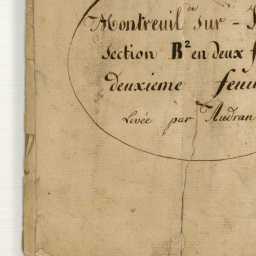 Montreuil sur -
Section B² en deux f
deuxieme feui
Levée par Audran